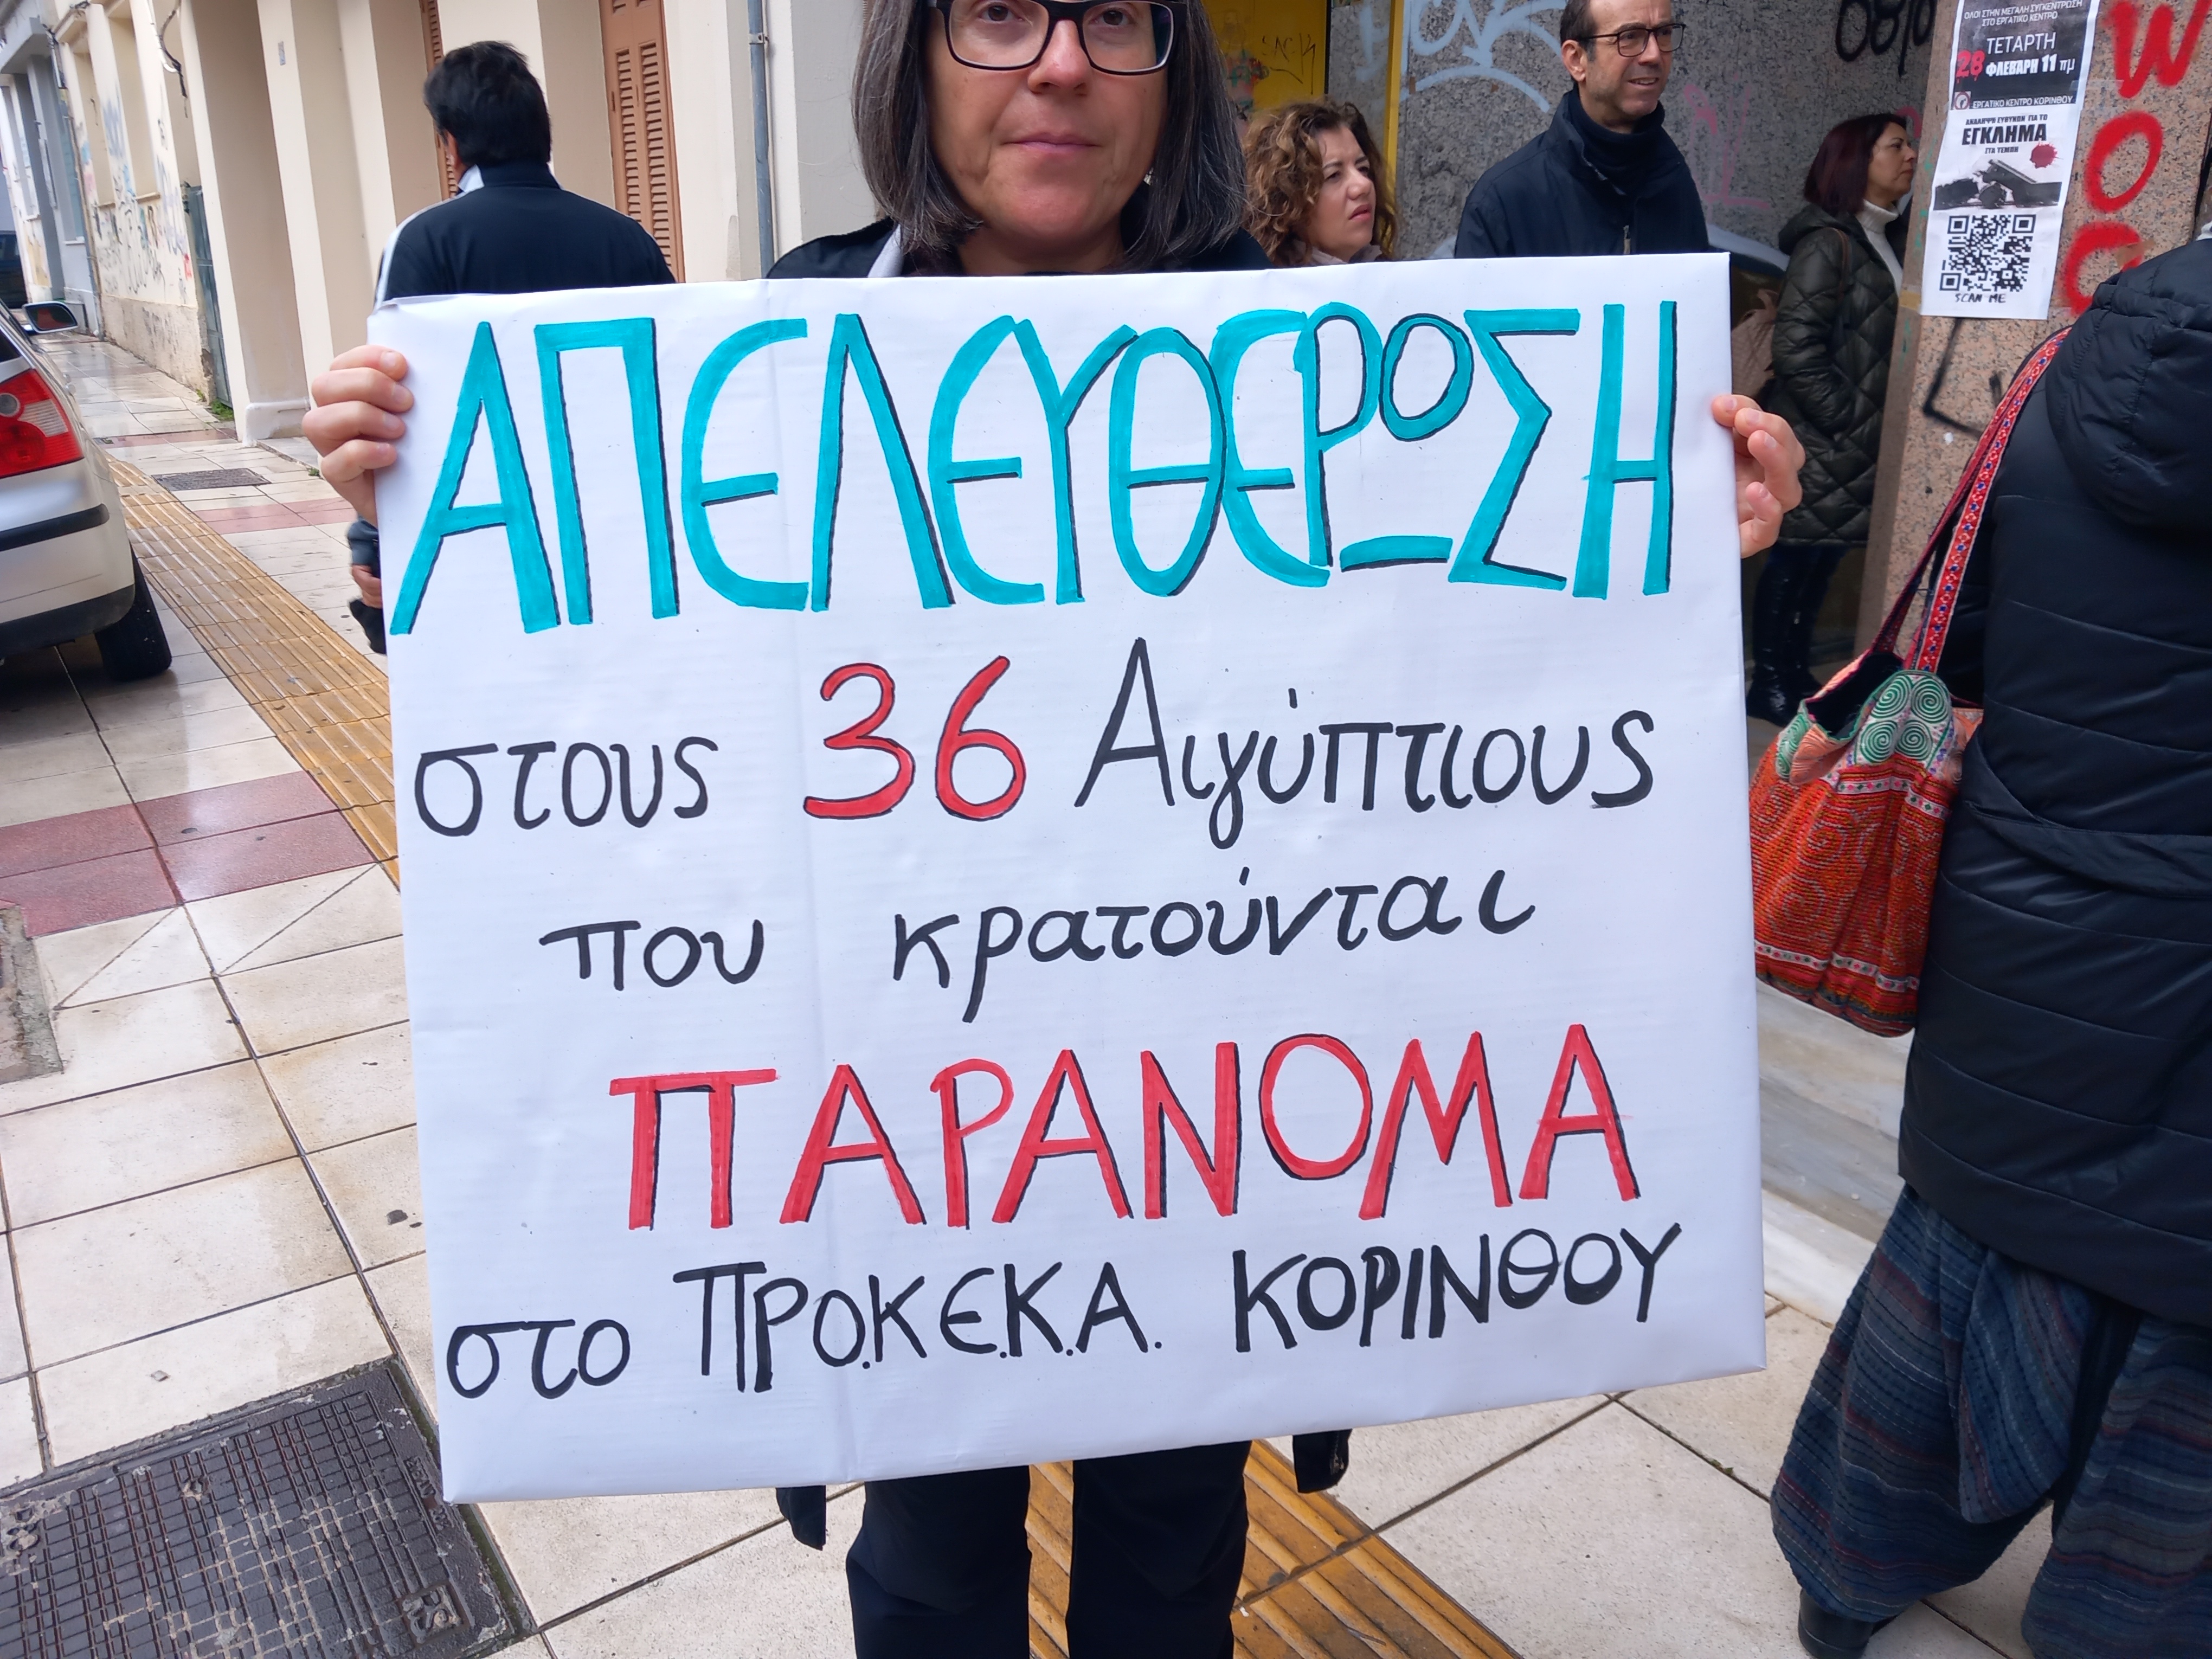 ΑΠΕΛΕΥΘΕΡΩΣΗ
στους 36 Αιγύπτιους
που κρατούνται
ΠΑΡΑΝΟΜΑ
στο ΠΡΟ.ΚΕ.Κ.Α. ΚΟΡΙΝΘΟΥ
ΟΛΟΙ ΣΤΗΝ ΜΕΓΑΛΗ ΣΥΓΚΕΝΤΡΩΣΗ
ΣΤΟ ΕΡΓΑΤΙΚΟ ΚΕΝΤΡΟ
28 ΤΕΤΑΡΤΗ
ΦΛΕΒΑΡΗ 11 πμ
ΕΡΓΑΤΙΚΟ ΚΕΝΤΡΟ ΚΟΡΙΝΘΟΥ
ΓΙΑ ΤΟ
ΕΓΚΛΗΜΑ
ΣΤΑ ΤΕΜΠΗ
SCAN ME